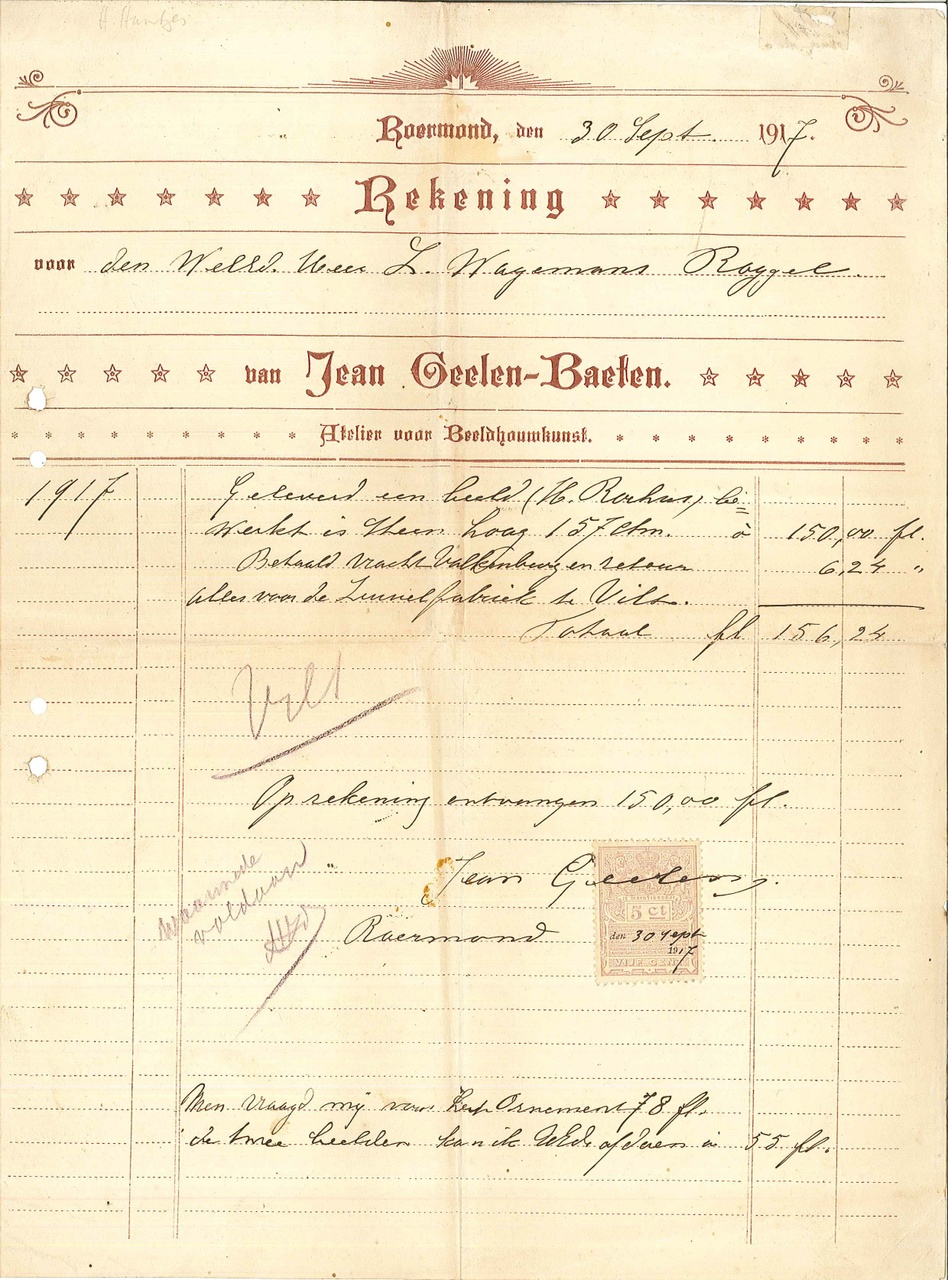 Roermond, den 30 Sept. 1917.
Rekening
voor den WelEd. Heer L. Wagemans Roggel.
van Jean Geelen-Baeten.
Atelier voor Beeldhouwkunst.
1917 Geleverd een beeld (H. Rochus) be=
werkt is steen hoog 157 ctm. à 150,00 fl.
Betaald vracht Valkenburg en retour 6,24 "
alles voor de Zuivelfabriek te Vilt.
Totaal fl 156,24
Vilt
Op rekening ontvangen 150,00 fl.
waarmede
voldaan
Jean Geelen
5 ct
Roermond
den 30 Sept
1917
VIJF CENT
Men vraagd mij voor Ornement 78 fl.
de twee beelden kan ik UEd. afdoen à 55 fl.